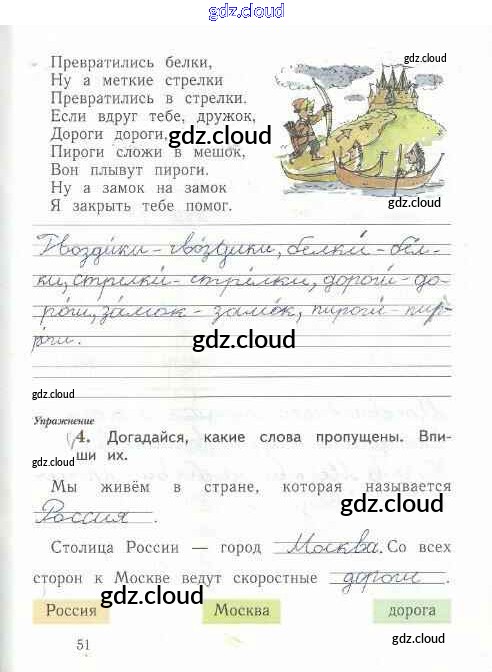 gdz.cloud
gdz.cloud
Превратились белки,
Ну а меткие стрелки
Превратились в стрелки.
Если вдруг тебе, дружок,
Дороги дороги,
gdz.cloud
Пироги сложи в мешок,
Вон плывут пироги.
Ну а замок на замок
Я закрыть тебе помог.
gdz.cloud
gdz.cloud
Гвозди́ки - гво́здики, белки́ - бе́л-
ки, стрелки́ - стре́лки, доро́ги - до-
роги́, за́мок - замо́к, пироги́ - пи-
ро́ги.
gdz.cloud
gdz.cloud
Упражнение
4. Догадайся, какие слова пропущены. Впи-
ши их.
gdz.cloud
Мы живём в стране, которая называется
Россия.
gdz.cloud
Столица России — город Москва. Со всех
сторон к Москве ведут скоростные дороги.
gdz.cloud
Россия Москва дорога
51
gdz.cloud
gdz.cloud